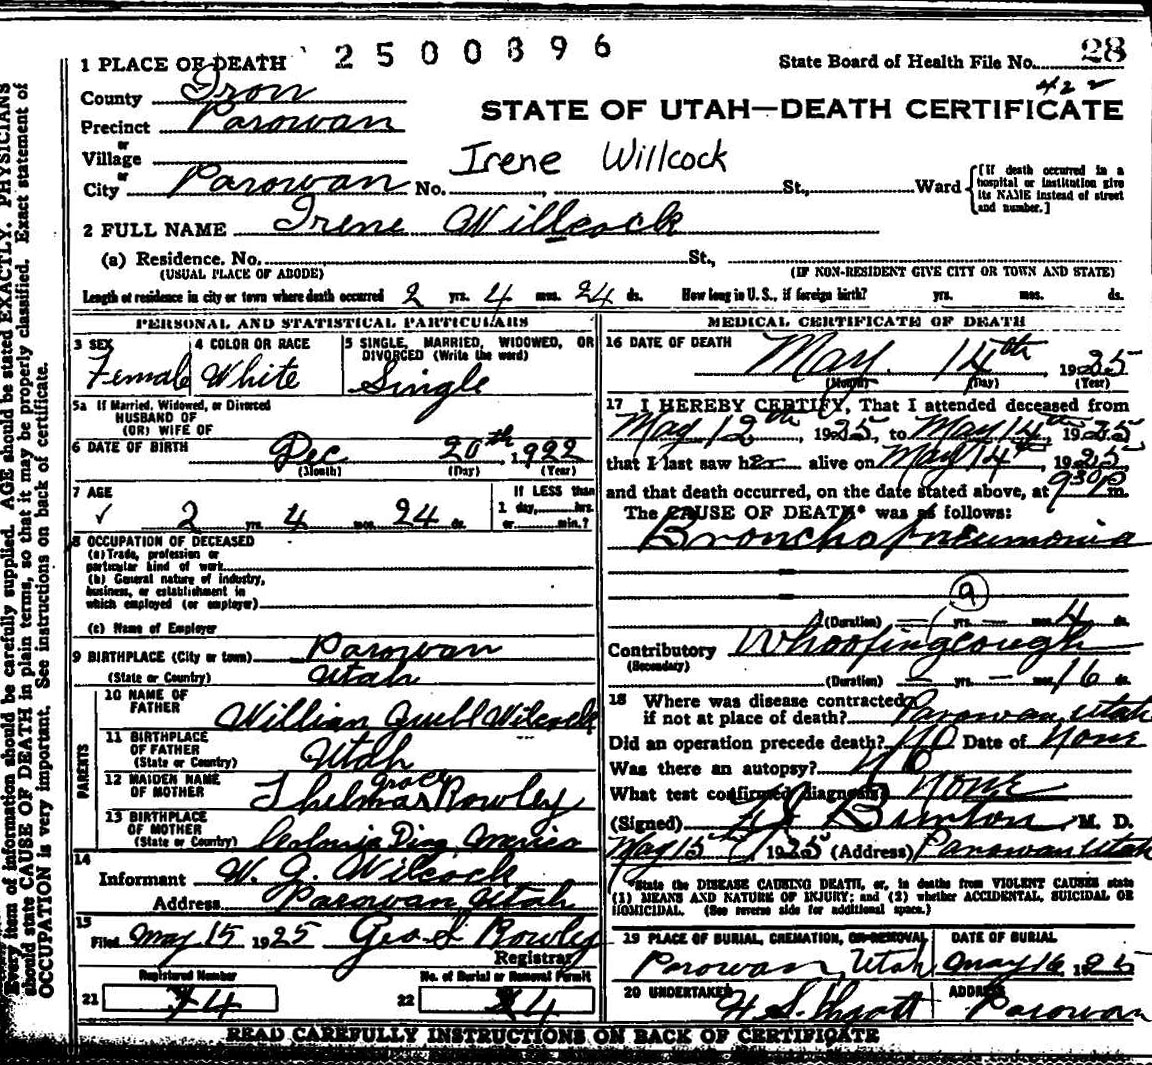 2500896
1 PLACE OF DEATH
State Board of Health File No. 28
422
County Iron
STATE OF UTAH—DEATH CERTIFICATE
Precinct Parowan
or
Village
or
Irene Willcock
City Parowan No. , St., Ward
[If death occurred in a hospital or institution give its NAME instead of street and number.]
2 FULL NAME Irene Willcock
(a) Residence. No. St.,
(USUAL PLACE OF ABODE) (IF NON-RESIDENT GIVE CITY OR TOWN AND STATE)
Length of residence in city or town where death occurred 2 yrs. 4 mos. 24 ds. How long in U.S., if foreign birth? yrs. mos. ds.
PERSONAL AND STATISTICAL PARTICULARS
3 SEX
Female
4 COLOR OR RACE
White
5 SINGLE, MARRIED, WIDOWED, OR
DIVORCED (Write the word)
Single
5a If Married, Widowed, or Divorced
HUSBAND OF
(OR) WIFE OF
6 DATE OF BIRTH Dec 20th, 1922
(Month) (Day) (Year)
7 AGE
✓ 2 yrs. 4 mos. 24 ds.
If LESS than
1 day, hrs.
or min.?
8 OCCUPATION OF DECEASED
(a) Trade, profession or
particular kind of work
(b) General nature of industry,
business, or establishment in
which employed (or employer)
(c) Name of Employer
9 BIRTHPLACE (City or town) Parowan
(State or Country) Utah
PARENTS
10 NAME OF
FATHER William Wilcock
11 BIRTHPLACE
OF FATHER
(State or Country) Utah
12 MAIDEN NAME
OF MOTHER Thelma Grace Rowley
13 BIRTHPLACE
OF MOTHER
(State or Country) Colonia Diaz, Mexico
14
Informant W. G. Wilcock
Address Parowan Utah
15
Filed May 15 1925 Geo. S. Rowley
Registrar
Registered Number
21 4
No. of Burial or Removal Permit
22 4
MEDICAL CERTIFICATE OF DEATH
16 DATE OF DEATH
May 14th, 1925
(Month) (Day) (Year)
17 I HEREBY CERTIFY, That I attended deceased from
May 12th, 1925, to May 14th, 1925,
that I last saw her alive on May 14th, 1925,
and that death occurred, on the date stated above, at 930 P m.
The CAUSE OF DEATH* was as follows:
Broncho pneumonia
9
(Duration) — yrs. — mos. 4 ds.
Contributory Whooping cough
(Secondary)
(Duration) — yrs. — mos. 16 ds.
18 Where was disease contracted
if not at place of death? Parowan, Utah
Did an operation precede death? NO Date of None
Was there an autopsy? NO
What test confirmed diagnosis? None
(Signed) Burton, M. D.
May 15 1925 (Address) Parowan Utah
*State the DISEASE CAUSING DEATH, or, in deaths from VIOLENT CAUSES state
(1) MEANS AND NATURE OF INJURY; and (2) whether ACCIDENTAL, SUICIDAL OR
HOMICIDAL. (See reverse side for additional space.)
19 PLACE OF BURIAL, CREMATION, OR REMOVAL
Parowan, Utah
DATE OF BURIAL
May 16 1925
20 UNDERTAKER
ADDRESS
Parowan
READ CAREFULLY INSTRUCTIONS ON BACK OF CERTIFICATE
Every item of information should be carefully supplied. AGE should be stated EXACTLY. PHYSICIANS
should state CAUSE OF DEATH in plain terms, so that it may be properly classified. Exact statement of
OCCUPATION is very important. See instructions on back of certificate.